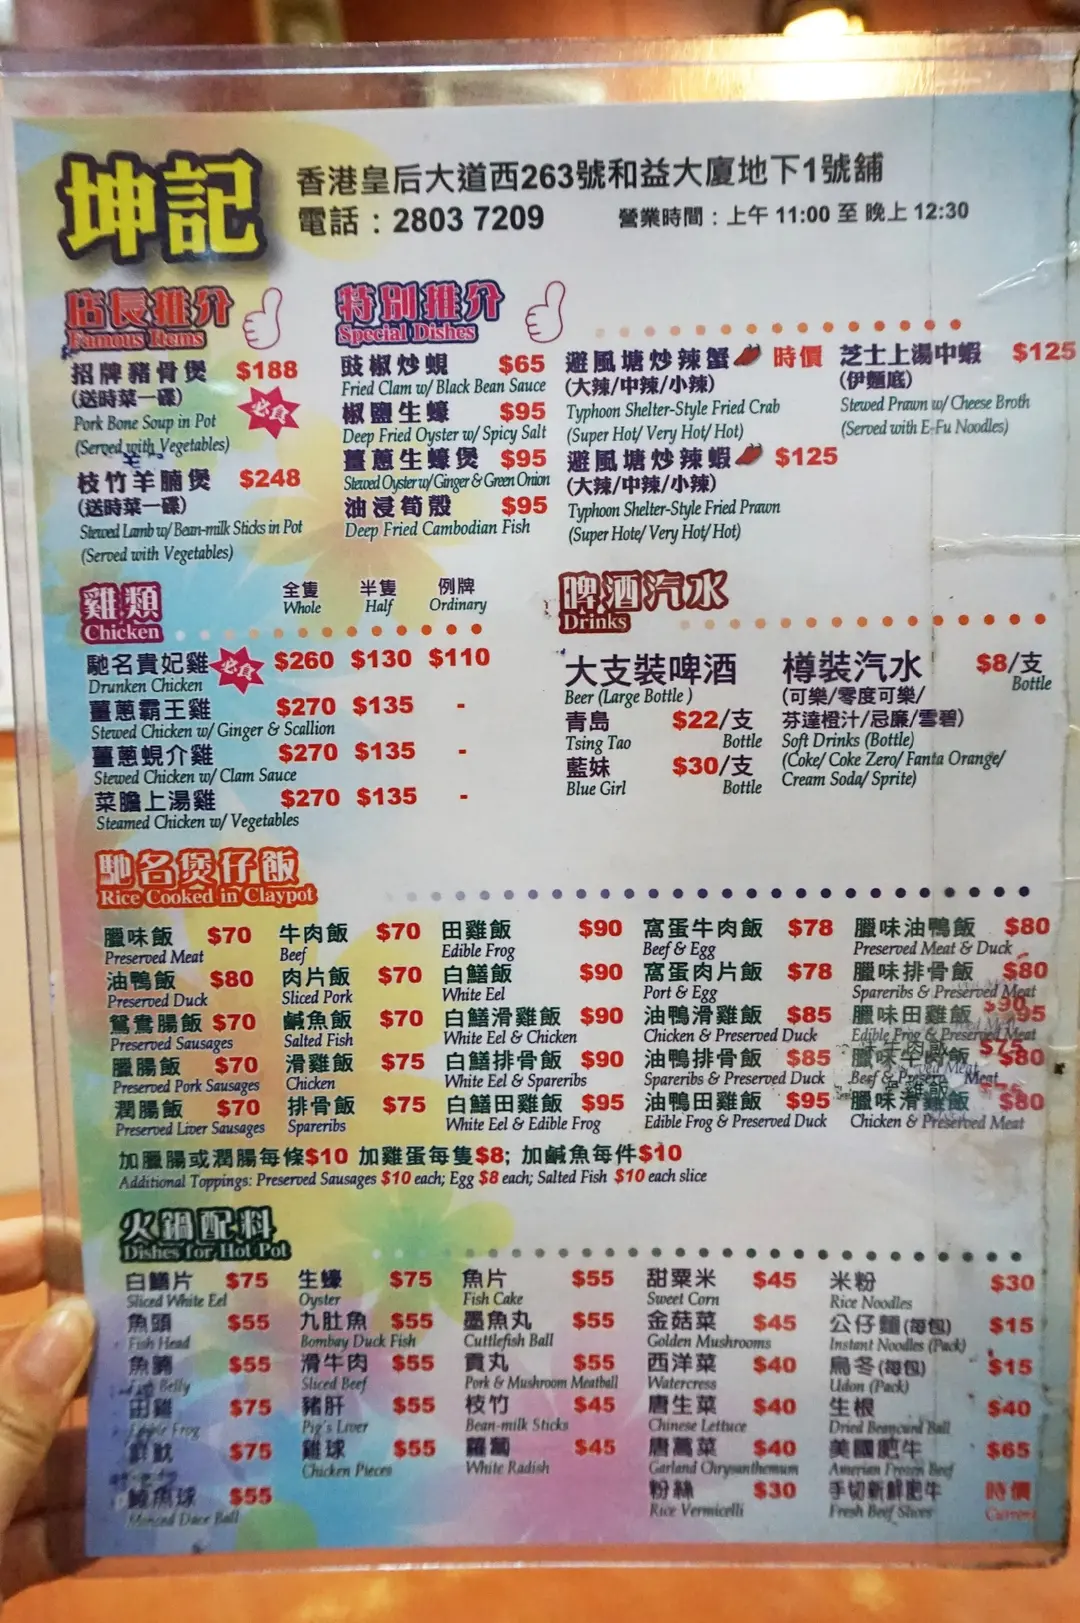 坤記
香港皇后大道西263號和益大廈地下1號舖
電話：2803 7209
營業時間：上午 11:00 至 晚上 12:30
店長推介
Famous Items
招牌豬骨煲 $188
(送時菜一碟)
必食
Pork Bone Soup in Pot
(Served with Vegetables)
枝竹羊腩煲 $248
(送時菜一碟)
Stewed Lamb w/ Bean-milk Sticks in Pot
(Served with Vegetables)
特別推介
Special Dishes
豉椒炒蜆 $65
Fried Clam w/ Black Bean Sauce
椒鹽生蠔 $95
Deep Fried Oyster w/ Spicy Salt
薑蔥生蠔煲 $95
Stewed Oyster w/ Ginger & Green Onion
油浸筍殼 $95
Deep Fried Cambodian Fish
避風塘炒辣蟹 時價
(大辣/中辣/小辣)
Typhoon Shelter-Style Fried Crab
(Super Hot/ Very Hot/ Hot)
避風塘炒辣蝦 $125
(大辣/中辣/小辣)
Typhoon Shelter-Style Fried Prawn
(Super Hote/ Very Hot/ Hot)
芝士上湯中蝦 $125
(伊麵底)
Stewed Prawn w/ Cheese Broth
(Served with E-Fu Noodles)
雞類
Chicken
全隻 半隻 例牌
Whole Half Ordinary
馳名貴妃雞 必食 $260 $130 $110
Drunken Chicken
薑蔥霸王雞 $270 $135 -
Stewed Chicken w/ Ginger & Scallion
薑蔥蜆介雞 $270 $135 -
Stewed Chicken w/ Clam Sauce
菜膽上湯雞 $270 $135 -
Steamed Chicken w/ Vegetables
啤酒汽水
Drinks
大支裝啤酒
Beer (Large Bottle )
青島 $22/支
Tsing Tao Bottle
藍妹 $30/支
Blue Girl Bottle
樽裝汽水 $8/支
Bottle
(可樂/零度可樂/
芬達橙汁/忌廉/雪碧)
Soft Drinks (Bottle)
(Coke/ Coke Zero/ Fanta Orange/
Cream Soda/ Sprite)
馳名煲仔飯
Rice Cooked in Claypot
臘味飯 $70 牛肉飯 $70 田雞飯 $90 窩蛋牛肉飯 $78 臘味油鴨飯 $80
Preserved Meat Beef Edible Frog Beef & Egg Preserved Meat & Duck
油鴨飯 $80 肉片飯 $70 白鱔飯 $90 窩蛋肉片飯 $78 臘味排骨飯 $80
Preserved Duck Sliced Pork White Eel Port & Egg Spareribs & Preserved Meat
鴛鴦腸飯 $70 鹹魚飯 $70 白鱔滑雞飯 $90 油鴨滑雞飯 $85 臘味田雞飯 $95
Preserved Sausages Salted Fish White Eel & Chicken Chicken & Preserved Duck Edible Frog & Preserved Meat
臘腸飯 $70 滑雞飯 $75 白鱔排骨飯 $90 油鴨排骨飯 $85 臘味牛肉飯 $80
Preserved Pork Sausages Chicken White Eel & Spareribs Spareribs & Preserved Duck Beef & Meat
潤腸飯 $70 排骨飯 $75 白鱔田雞飯 $95 油鴨田雞飯 $95 臘味滑雞飯 $80
Preserved Liver Sausages Spareribs White Eel & Edible Frog Edible Frog & Preserved Duck Chicken & Preserved Meat
加臘腸或潤腸每條$10 加雞蛋每隻$8; 加鹹魚每件$10
Additional Toppings: Preserved Sausages $10 each; Egg $8 each; Salted Fish $10 each slice
火鍋配料
Dishes for Hot Pot
白鱔片 $75 生蠔 $75 魚片 $55 甜粟米 $45 米粉 $30
Sliced White Eel Oyster Fish Cake Sweet Corn Rice Noodles
魚頭 $55 九肚魚 $55 墨魚丸 $55 金菇菜 $45 公仔麵(每包) $15
Fish Head Bombay Duck Fish Cuttlefish Ball Golden Mushrooms Instant Noodles (Pack)
魚腩 $55 滑牛肉 $55 貢丸 $55 西洋菜 $40 烏冬(每包) $15
Belly Sliced Beef Pork & Mushroom Meatball Watercress Udon (Pack)
田雞 $75 豬肝 $55 枝竹 $45 唐生菜 $40 生根 $40
Edible Frog Pig's Liver Bean-milk Sticks Chinese Lettuce Dried Beancurd Ball
鮮魷 $75 雞球 $55 蘿蔔 $45 唐蒿菜 $40 美國肥牛 $65
Chicken Pieces White Radish Garland Chrysanthemum Amerian Frozen Beef
鯪魚球 $55 粉絲 $30 手切新鮮肥牛 時價
Minced Dace Ball Rice Vermicelli Fresh Beef Slices Current